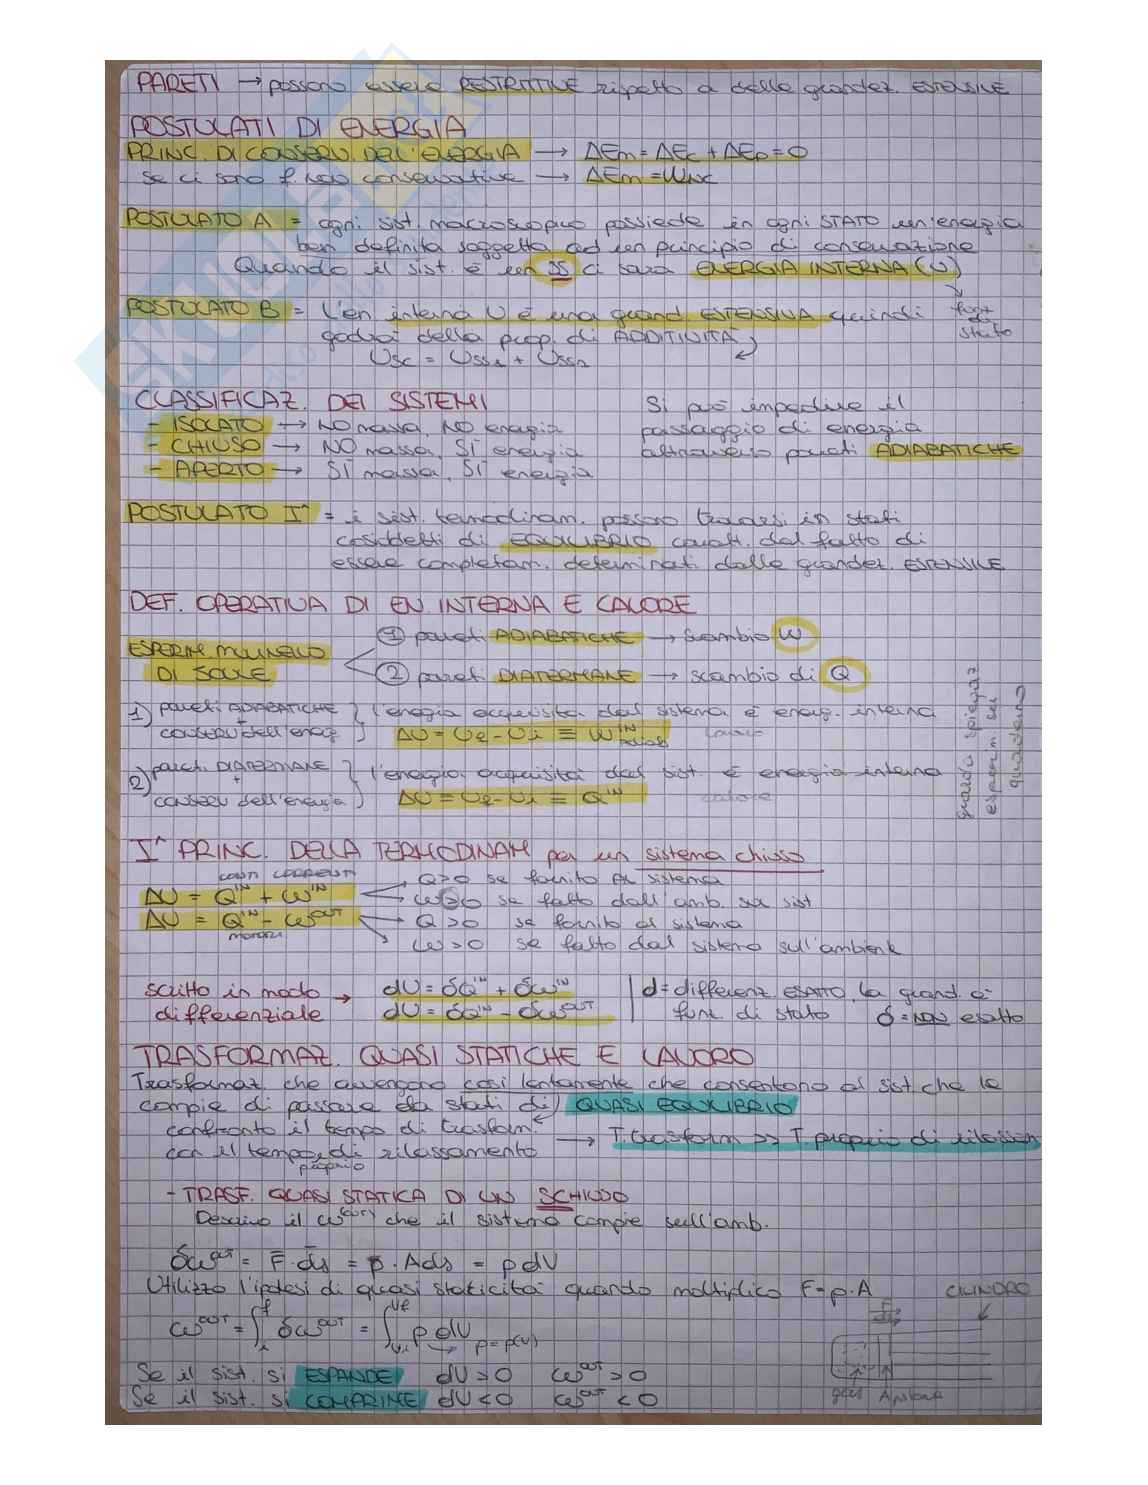 PARETI → possono essere RESTRITTIVE rispetto a delle grandez. ESTENSIVE
POSTULATI DI ENERGIA
PRINC. DI CONSERV. DELL'ENERGIA → ΔEm = ΔEc + ΔEp = 0
Se ci sono f. non conservative → ΔEm = Wnc
POSTULATO A = ogni sist. macroscopico possiede in ogni STATO un'energia
ben definita soggetta ad un principio di conservazione
Quando il sist. è un SS ci sarà ENERGIA INTERNA (U)
funz di stato
POSTULATO B = L'en interna U è una grand. ESTENSIVA quindi
godrà della prop. di ADDITIVITÀ
Usc = Uss1 + Uss2
CLASSIFICAZ. DEI SISTEMI
- ISOLATO → NO massa, NO energia
- CHIUSO → NO massa, SÌ energia
- APERTO → SÌ massa, SÌ energia
Si può impedire il
passaggio di energia
attraverso pareti ADIABATICHE
POSTULATO I^ = i sist. termodinam. possono trovarsi in stati
cosiddetti di EQUILIBRIO caratt. dal fatto di
essere completam. determinati dalle grandez. ESTENSIVE
DEF. OPERATIVA DI EN. INTERNA E CALORE
ESPERIM MULINELLO
DI JOULE
① pareti ADIABATICHE → scambio W
② pareti DIATERMANE → scambio di Q
1) pareti ADIABATICHE
+
conserv dell'energ
l'energia acquisita dal sistema è energ. interna
ΔU = Uf - Ui ≡ W^IN
lavoro
2) pareti DIATERMANE
+
conserv dell'energia
l'energia acquisita dal sist. è energia interna
ΔU = Uf - Ui ≡ Q^IN
calore
guarda spiegaz
esperim sul
quaderno
I^ PRINC. DELLA TERMODINAM per un sistema chiuso
ΔU = Q^IN + W^IN
ΔU = Q^IN - W^OUT
motori
Q>0 se fornito al sistema
W>0 se fatto dall'amb. su sist
Q>0 se fornito al sistema
W>0 se fatto dal sistema sull'ambiente
scritto in modo
differenziale →
dU = δQ^IN + δW^IN
dU = δQ^IN - δW^OUT
d = differenz. ESATTO, la grand. è
funz di stato δ = NON esatto
TRASFORMAZ. QUASI STATICHE E LAVORO
Trasformaz. che avvengono così lentamente che consentono al sist. che le
compie di passare da stati di QUASI EQUILIBRIO
confronto il tempo di trasform.
con il tempo di rilassamento
proprio
→ T. trasform >> T. proprio di rilassam
- TRASF. QUASI STATICA DI UN SCHIUSO
Descrivo il W^OUT che il sistema compie sull'amb.
δW^OUT = F · ds = p · Ads = p dV
Utilizzo l'ipotesi di quasi staticità quando moltiplico F = p · A
W^OUT = ∫i^f δW^OUT = ∫Vi^Vf p dV
→ p = p(V)
CILINDRO
F
ds
gas
A pistone
Se il sist. si ESPANDE dV > 0 W^OUT > 0
Se il sist. si COMPRIME dV < 0 W^OUT < 0